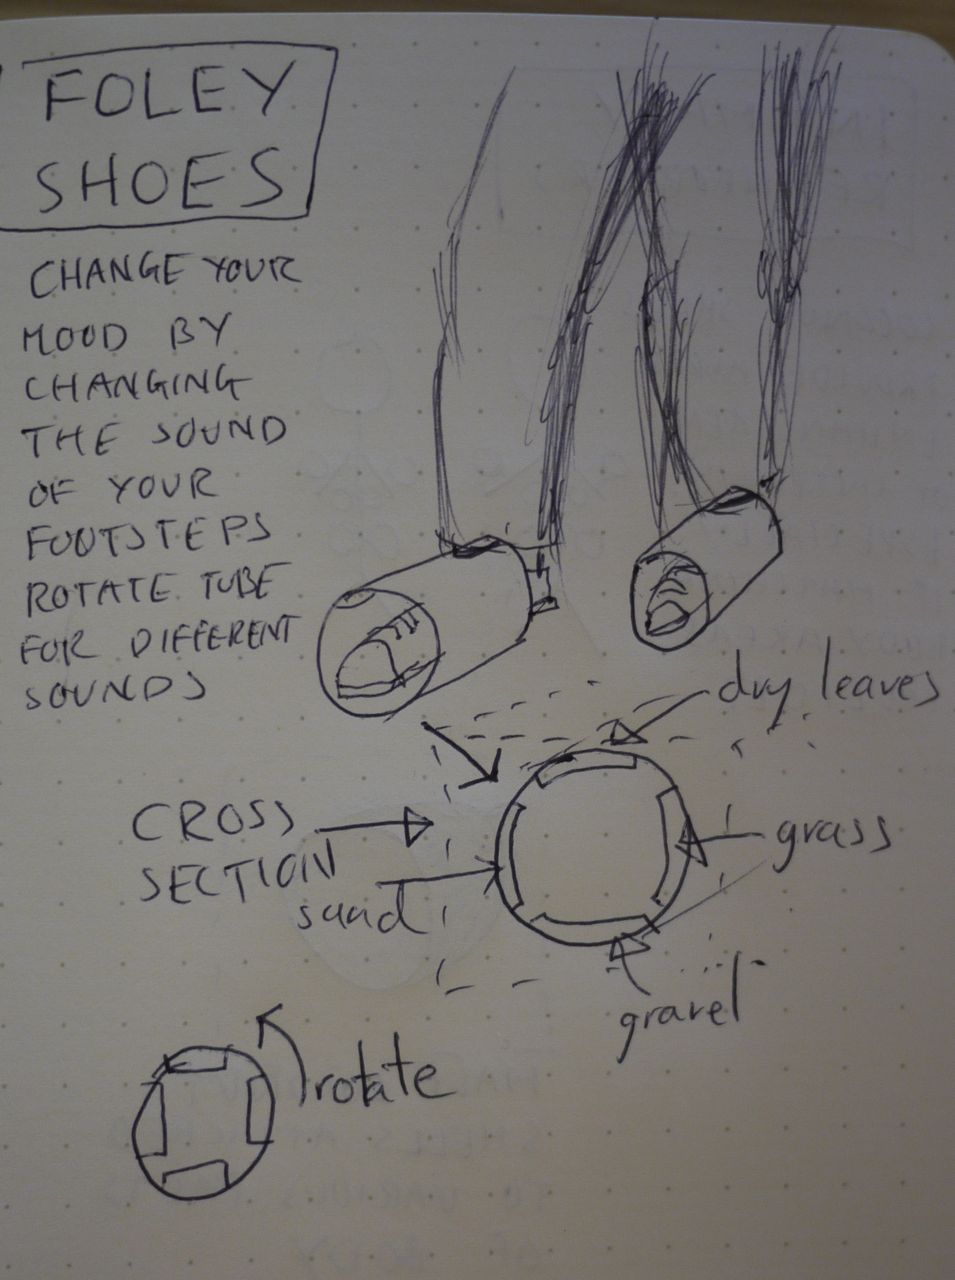 FOLEY
SHOES
CHANGE YOUR
MOOD BY
CHANGING
THE SOUND
OF YOUR
FOOTSTEPS
ROTATE TUBE
FOR DIFFERENT
SOUNDS
dry leaves
CROSS
SECTION
grass
sand
gravel
rotate